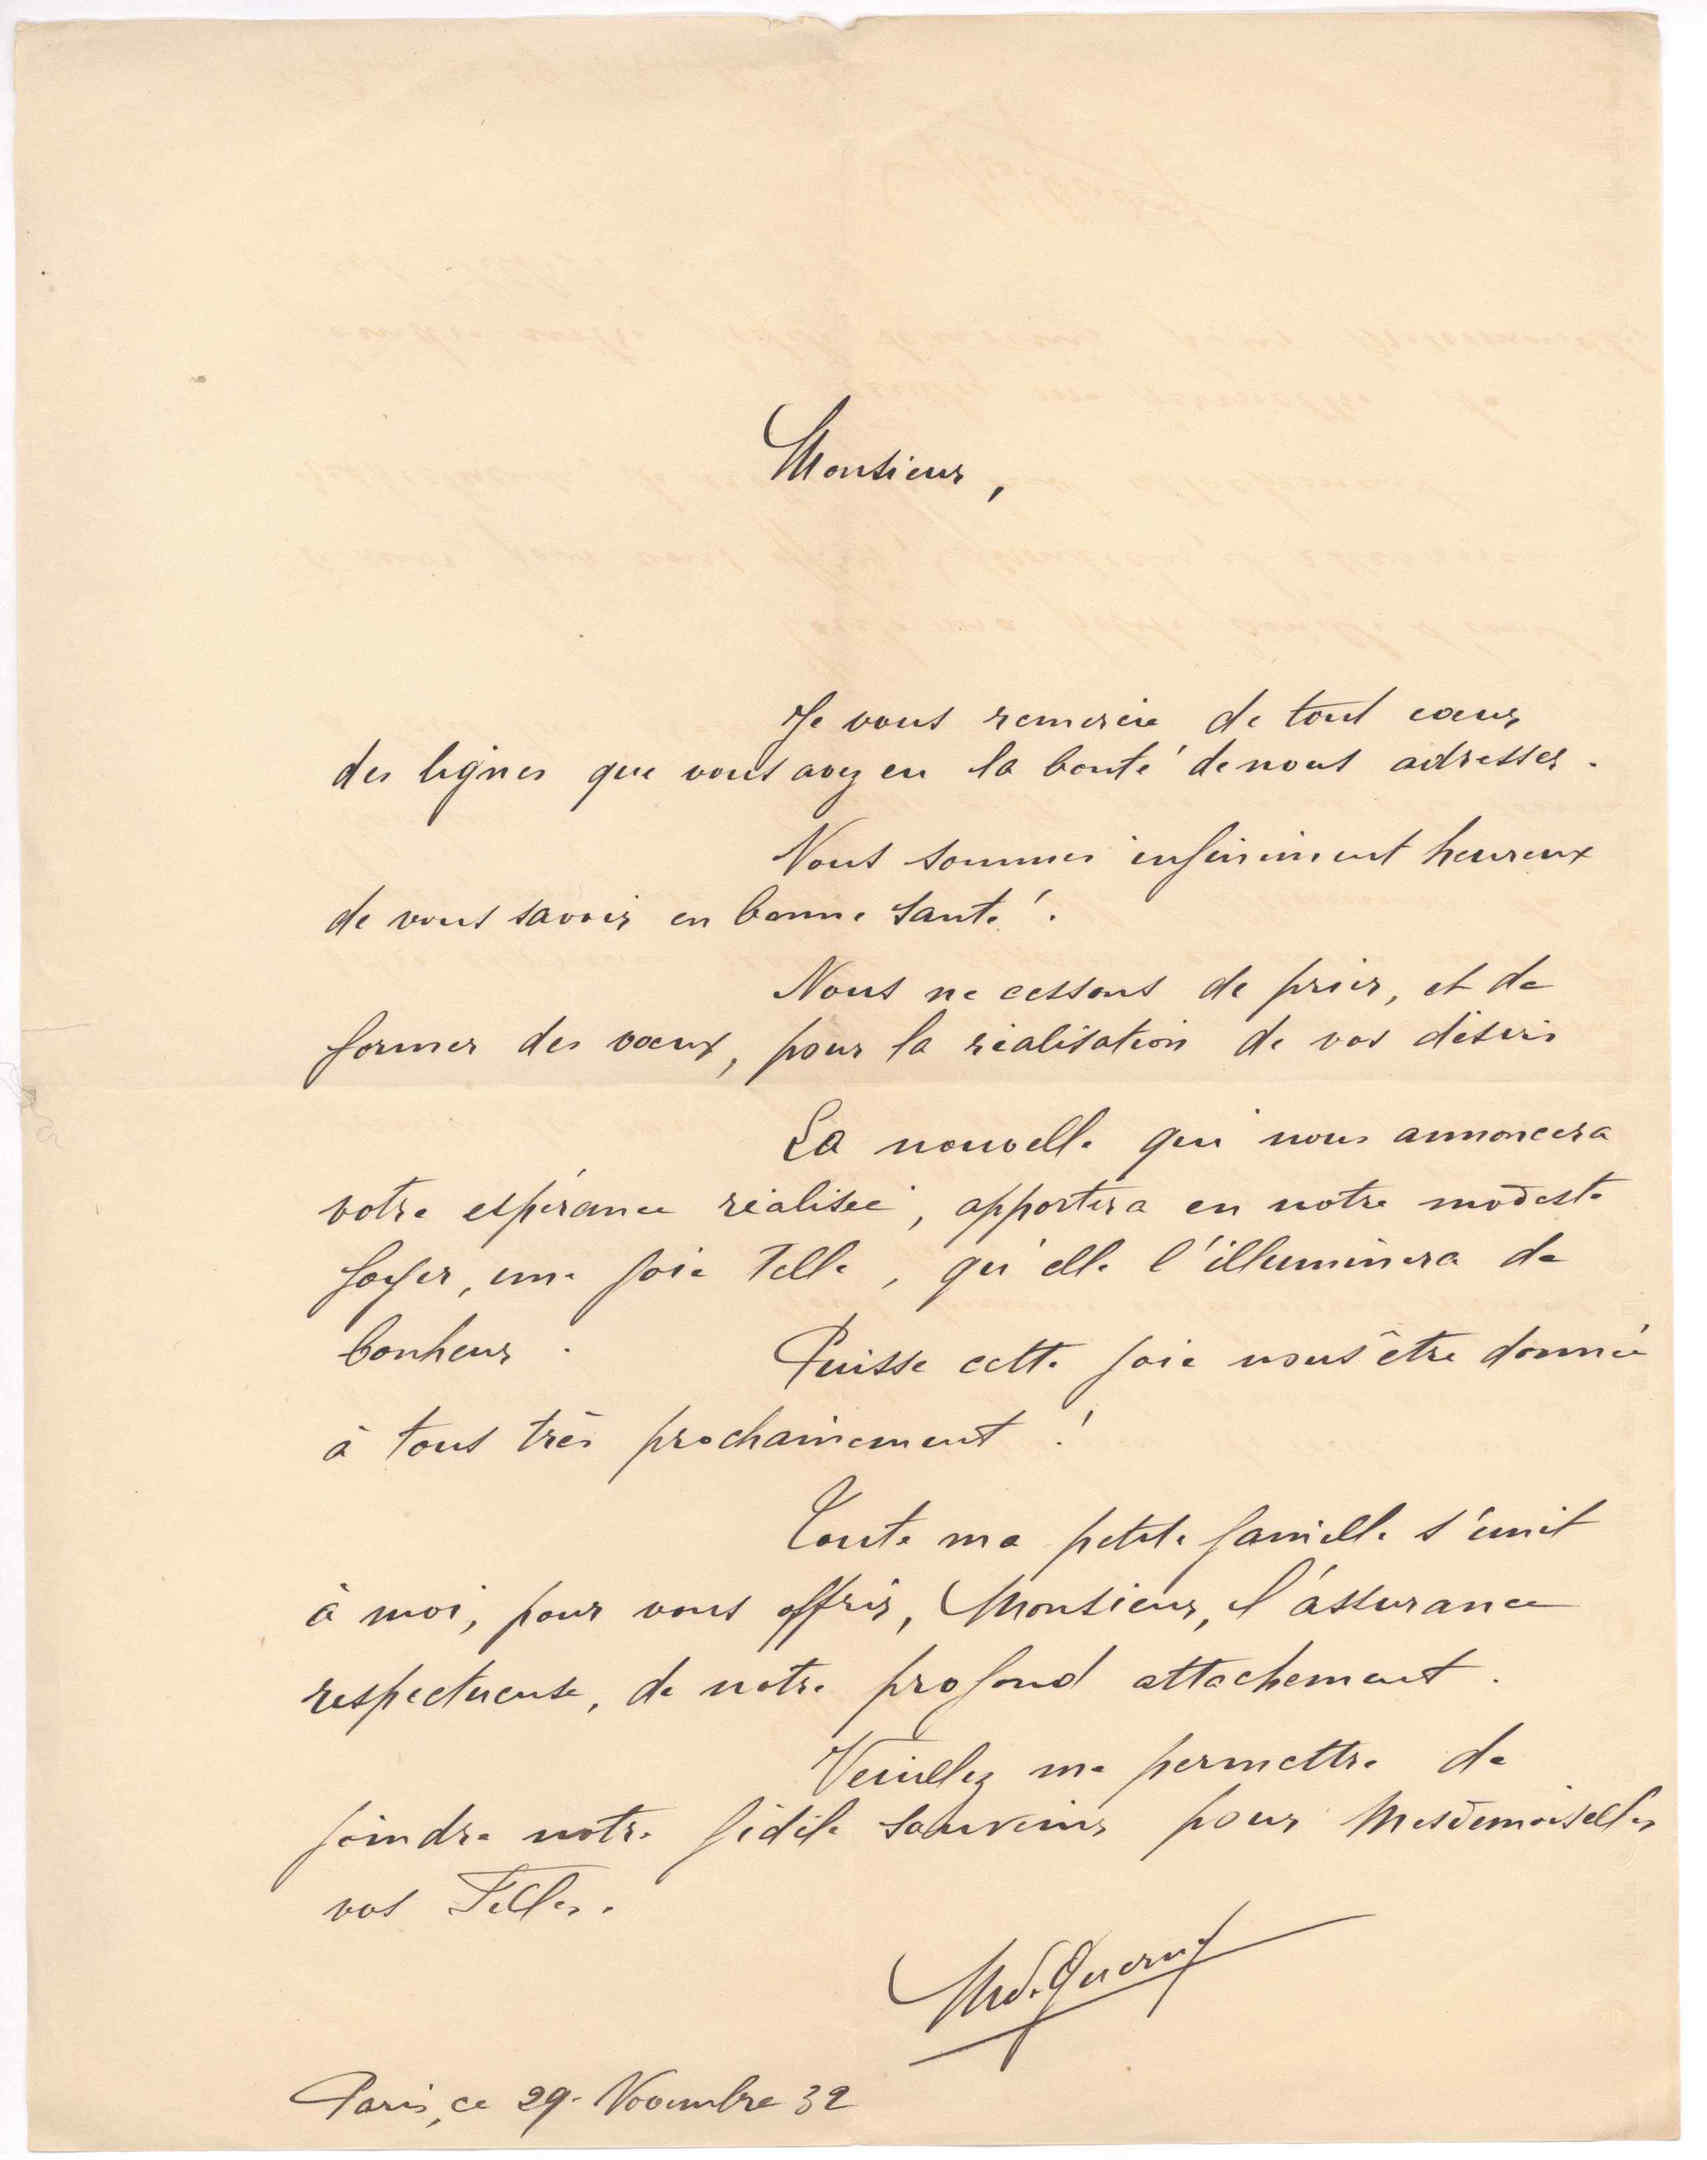 Monsieur,
Je vous remercie de tout cœur
des lignes que vous avez eu la bonté de nous adresser.
Nous sommes infiniment heureux
de vous savoir en bonne santé.
Nous ne cessons de prier, et de
former des vœux, pour la réalisation de vos désirs
La nouvelle qui nous annoncera
votre espérance réalisée, apportera en notre modeste
foyer, une joie telle, qu'elle l'illuminera de
bonheur. Puisse cette joie nous être donnée
à tous très prochainement !
Toute ma petite famille s'unit
à moi, pour vous offrir, Monsieur, l'assurance
respectueuse, de notre profond attachement.
Veuillez me permettre de
joindre notre fidèle souvenir pour Mesdemoiselles
vos Filles.
Paris, ce 29. Novembre 32